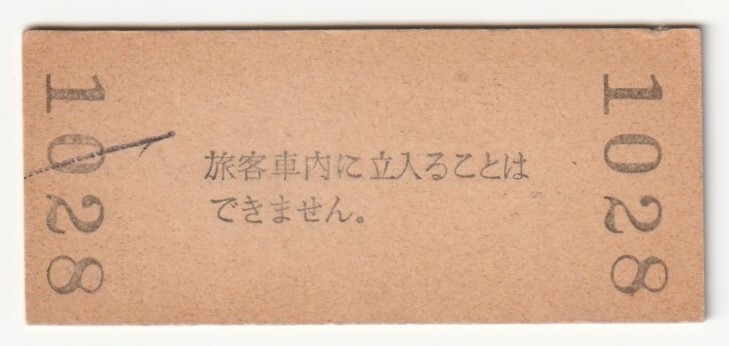 1028
旅客車内に立入ることは
できません。
1028